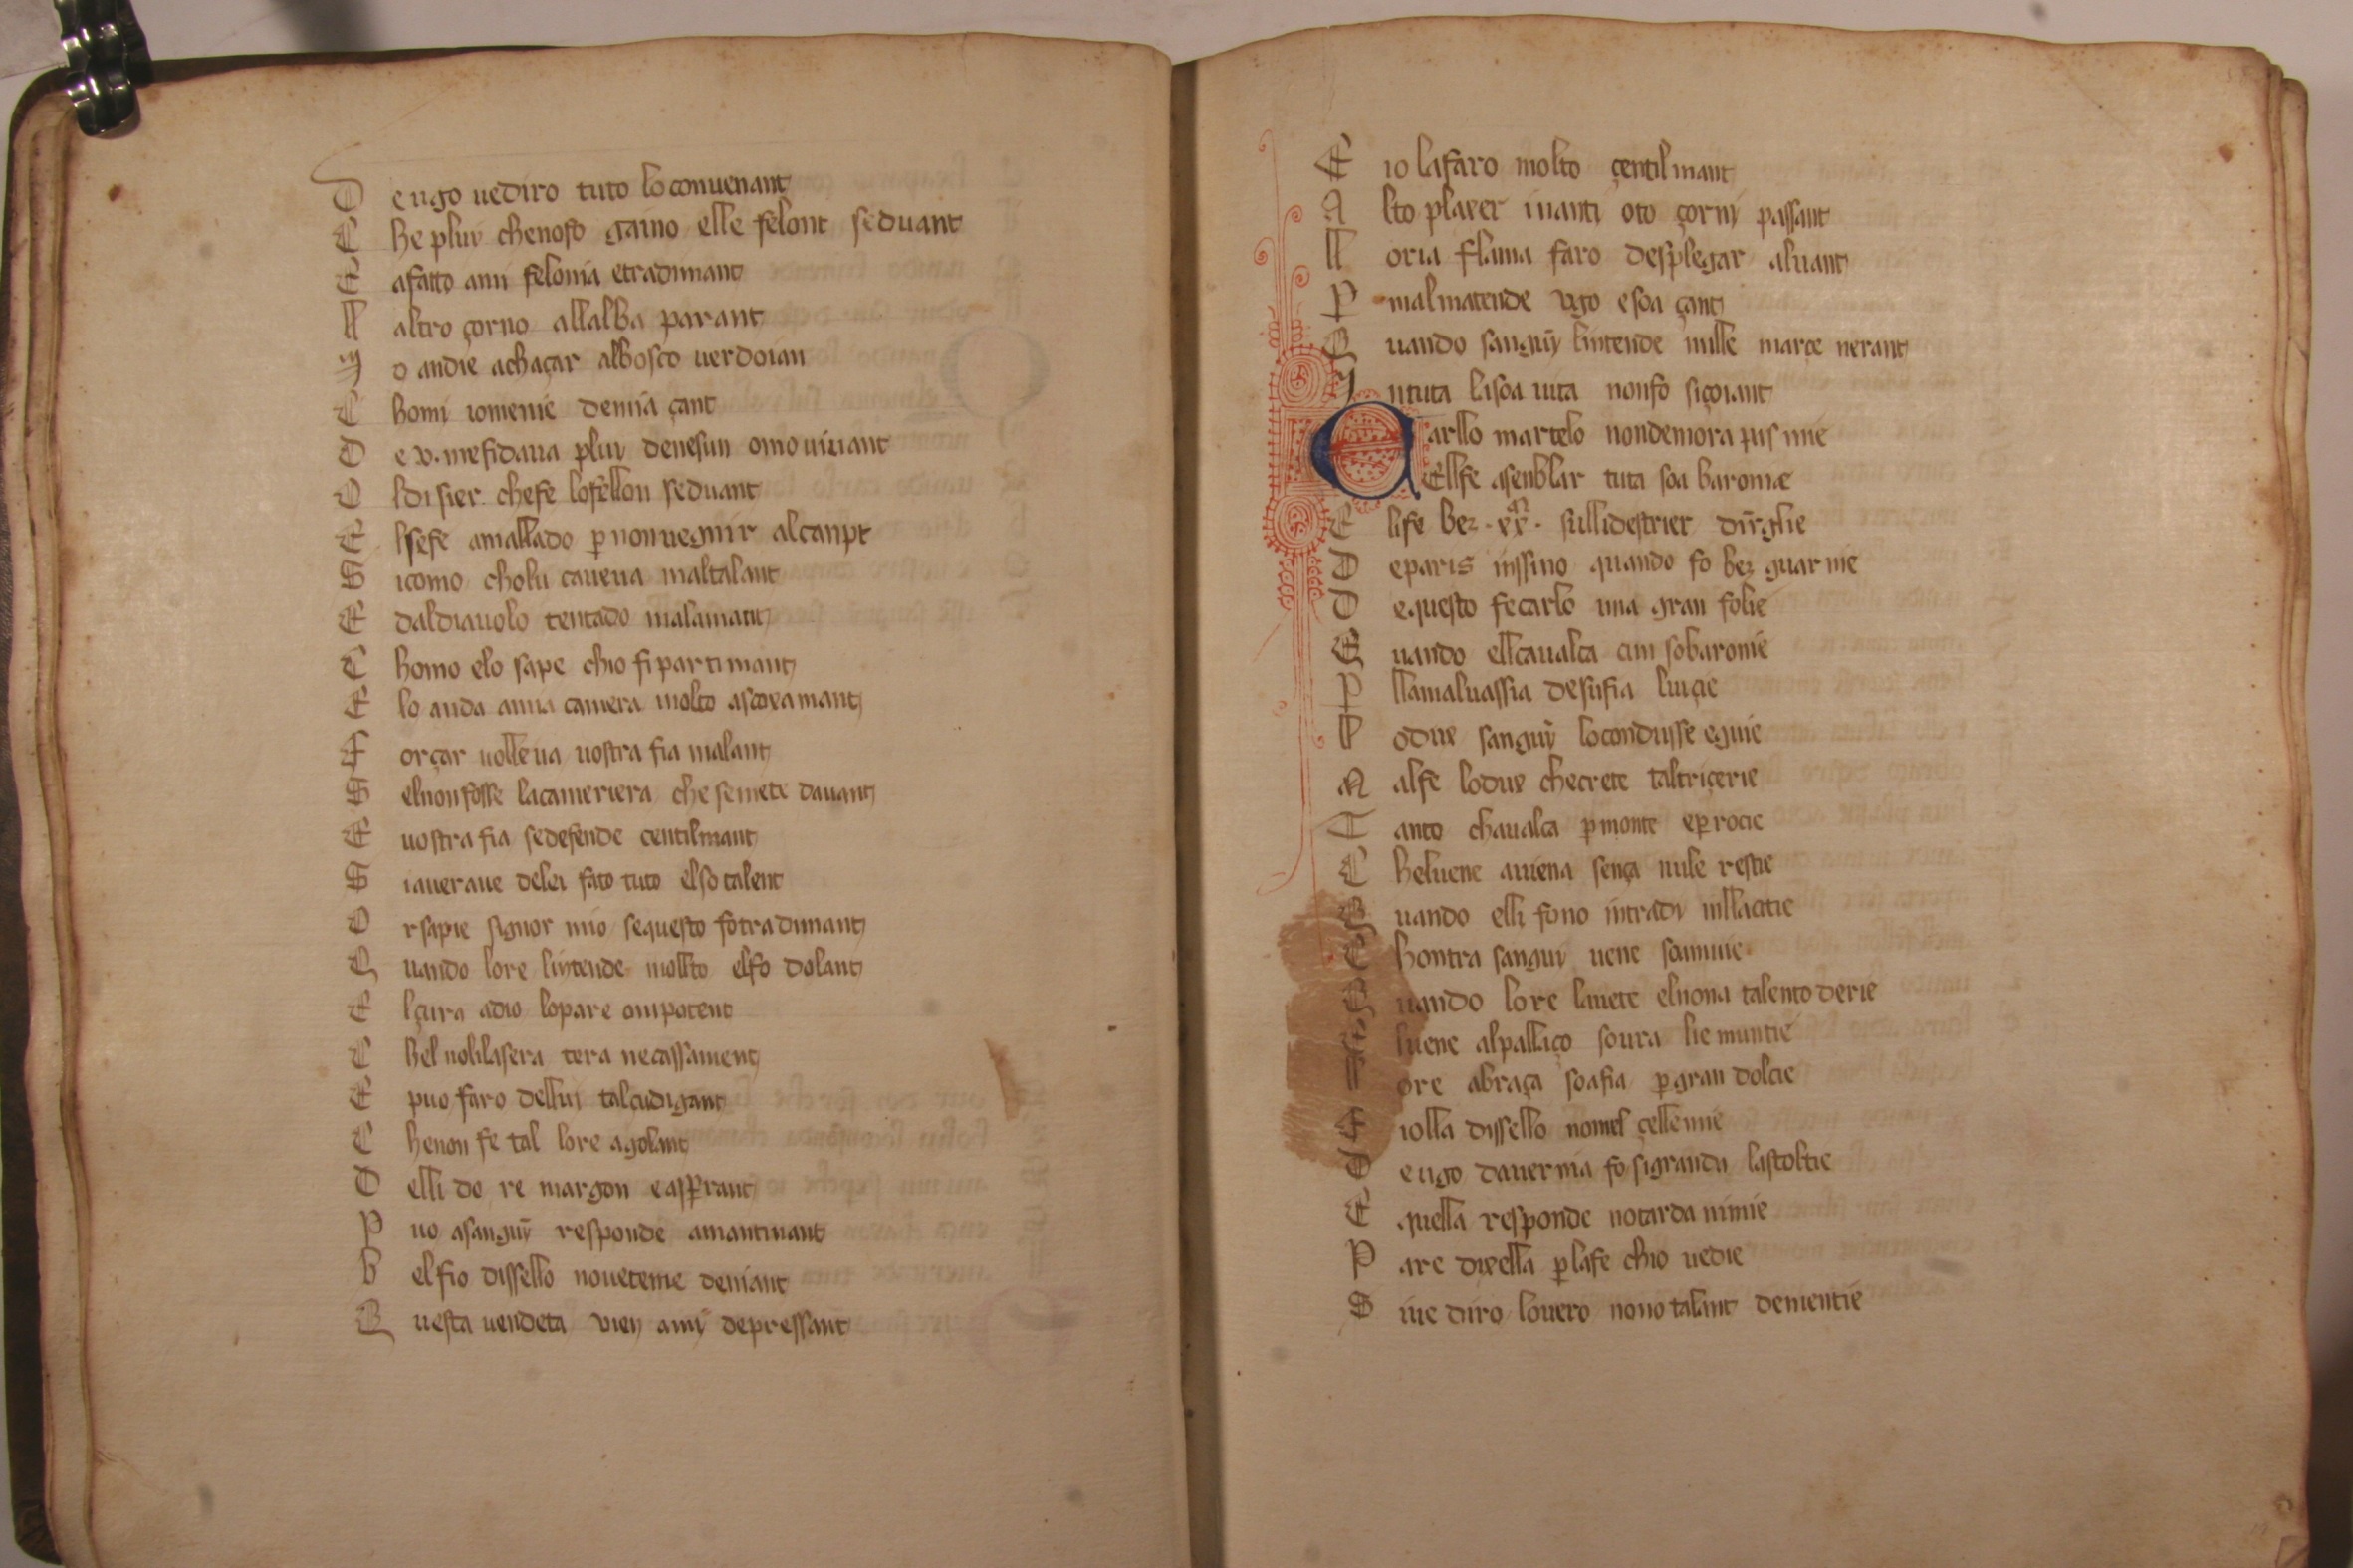 D e ugo uediro tuto lo conuenant
C he pluy chenoso gaino elle felont seduant
E a fatto ami felonia etradimant
ll altro çorno allalba parant
y o andie achaçar albosco uerdoian
C homi iomenie demia çant
D e v. mefidaua pluy denesun omo uiuant
O ldisier chefe lofellon seduant
E lsefe amallado p nonuegnir alcanpt
S icomo cholu caueua maltalant
E daldiauolo tentado malamant
C homo elo sape chio fi partimant
E lo anda amia camera molto ascoxamant
F orçar uolleua uostra fia malant
S elnonfosse lacameriera che semete dauant
E uostra fia sedefende centilmant
S iaueraue delei fato tuto elso talent
O rsapie signor mio sequesto fotradimant
Q uando lore lintende mollto elfo dolant
E lçura adio lopare onipotent
C hel nobilasera tera necassament
E puo faro delluy talcudigant
C henon fe tal lore agolant
D elli do re margon easprant
P uo asanguy responde amantinant
B elfio dissello noueteme deniant
Q uesta uendeta vien amy depressant
E io lafaro molto çentilmant
A lto plaxer inanti oto çorny passant
ll oria flama faro desplegar aluant
P malmatende vgo esoa çant
Q uando sanguy lintende mille marçe nerant
I ntuta lisoa uita nonfo siçoiant
C arllo martelo nondemora pus mie
Ellfe asenblar tuta soa baronie
E life bez .xx. sullidestrier dirglie
D eparis inssino quando fo bez guarnie
D equesto fecarlo una gran folie
Q uando ellcaualca cun sobaronie
P llamaluassia desufia luiçie
ll odux sanguy locondusse eguie
A alfe lodux checrete taltriçerie
T anto chaualca p monte eprocie
C heluene auiena sença nule restie
Q uando elli fono intrady inllacitie
C hontra sanguy uene scumie
Q uando lore lauete elnona talento derie
luene alpallaço soura lie muntie
ll ore abraça soafia p gran dolcie
F iolla dissello nomel çelle mie
D e ugo dauernia fo sigrandu lastoltie
E quella responde notarda nimie
P are dixella p lafe chio uedie
S iue diro louero nono talant dementie